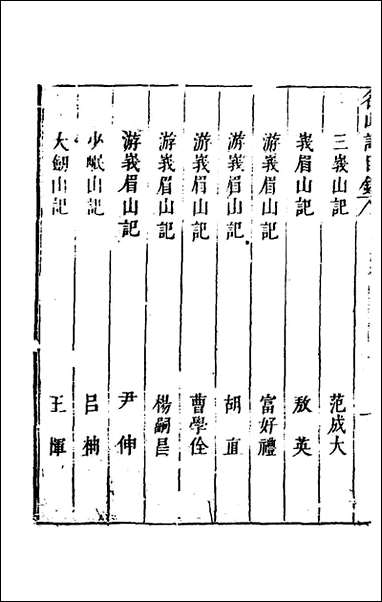 名山記目錄
三峩山記 范成大
峩眉山記 敖英
游峩眉山記 富好禮
游峩眉山記 胡直
游峩眉山記 曹學佺
游峩眉山記 楊嗣昌
游峩眉山記 尹伸
少岷山記 呂柟
大劒山記 王惲